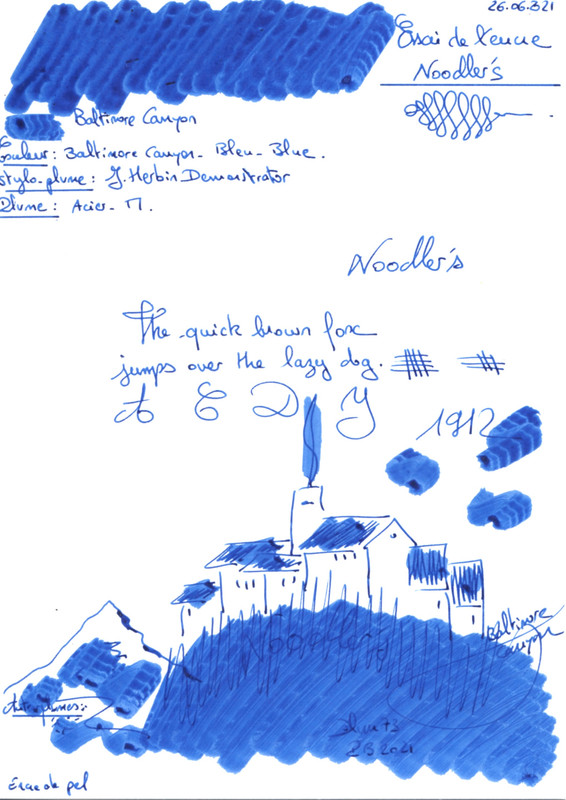 26.06.321
Essai de l'encre
Noodler's
Baltimore Canyon
Couleur : Baltimore Canyon - Bleu - Blue .
Stylo-plume : J. Herbin Demonstrator
Plume : Acier - M .
Noodler's
The quick brown fox
jumps over the lazy dog.
A E D Y
1912
Baltimore
Canyon
2021